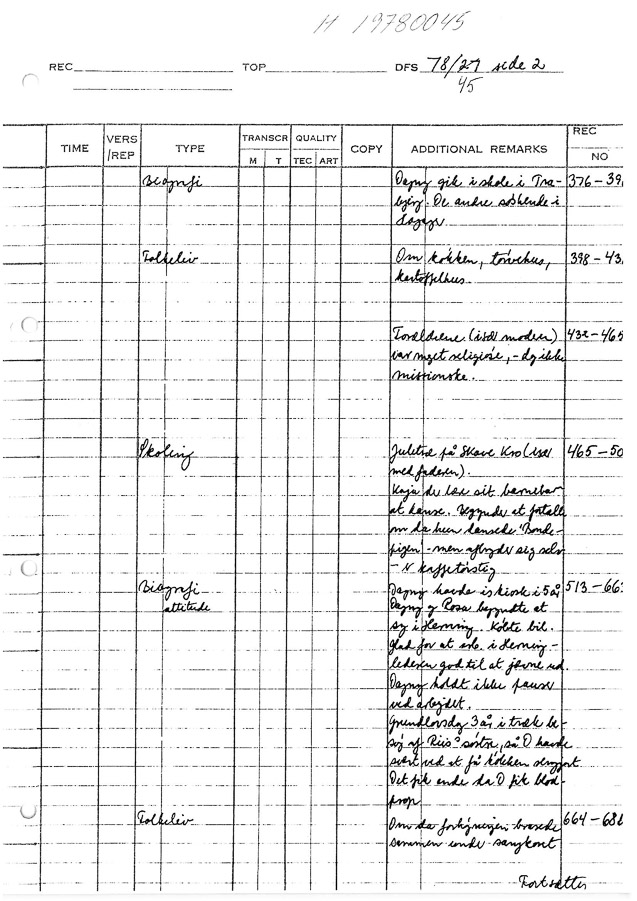 M 19780045
REC TOP DFS 78/27 side 2
45
TIME VERS /REP TYPE TRANSCR M T QUALITY TEC ART COPY ADDITIONAL REMARKS REC NO
Biografi Dagny gik i skole i Tra- 376 – 39
bjerg. De andre søskende i
Folkeliv Om køkken, tørvehus, 398 – 43
kartoffelhus.
Forældrene (især moderen) 432 – 465
var meget religiøse, – dog ikke
missionske.
Skoling Juletræ på Skave Kro (især 465 – 50
med faderen).
Kaja de lær sit barnebarn
at danse. Begyndte at fortælle
om da hun dansede "Bonde-
pigen" – men afbryder sig selv
– kaffetørstig
Biografi Dagny havde iskiosk i 5 år 513 – 66
attitude Dagny og Rosa begyndte at
sy i Herning. Købte bil.
Glad for at arb. i Herning –
lederen god til at jævne ud
Dagny holdt ikke pauser
ved arbejdet.
Grundlovsdag 3 år i træk be-
søg af Riis's søstre, så D havde
svært ved at få køkken rengjort
Det fik ende da D fik blod-
prop
Folkeliv Om da forhøjningen brasede 664 – 68
sammen under sangkort
Fortsætter